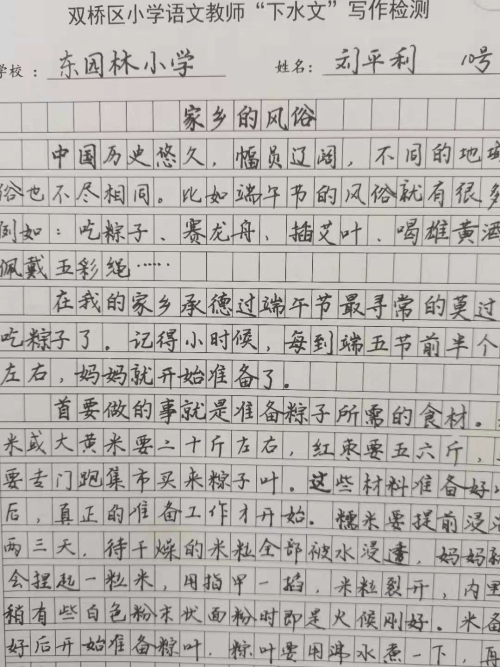 双桥区小学语文教师“下水文”写作检测
学校：东园林小学 姓名：刘平利 10号
家乡的风俗
中国历史悠久，幅员辽阔，不同的地域
俗也不尽相同。比如端午节的风俗就有很多
例如：吃粽子、赛龙舟、插艾叶、喝雄黄酒
佩戴五彩绳……
在我的家乡承德过端午节最寻常的莫过
吃粽子了。记得小时候，每到端五节前半个
左右，妈妈就开始准备了。
首要做的事就是准备粽子所需的食材。
米或大黄米要二十斤左右，红枣要五六斤，
要专门跑集市买来粽子叶。这些材料准备好
后，真正的准备工作才开始。糯米要提前浸泡
两三天，待干燥的米粒全部被水浸透，妈妈
会捏起一粒米，用指甲一掐，米粒裂开，内里
稍有些白色粉末状面粉时即是火候刚好。米备
好后开始准备粽叶，粽叶要用沸水煮一下，再